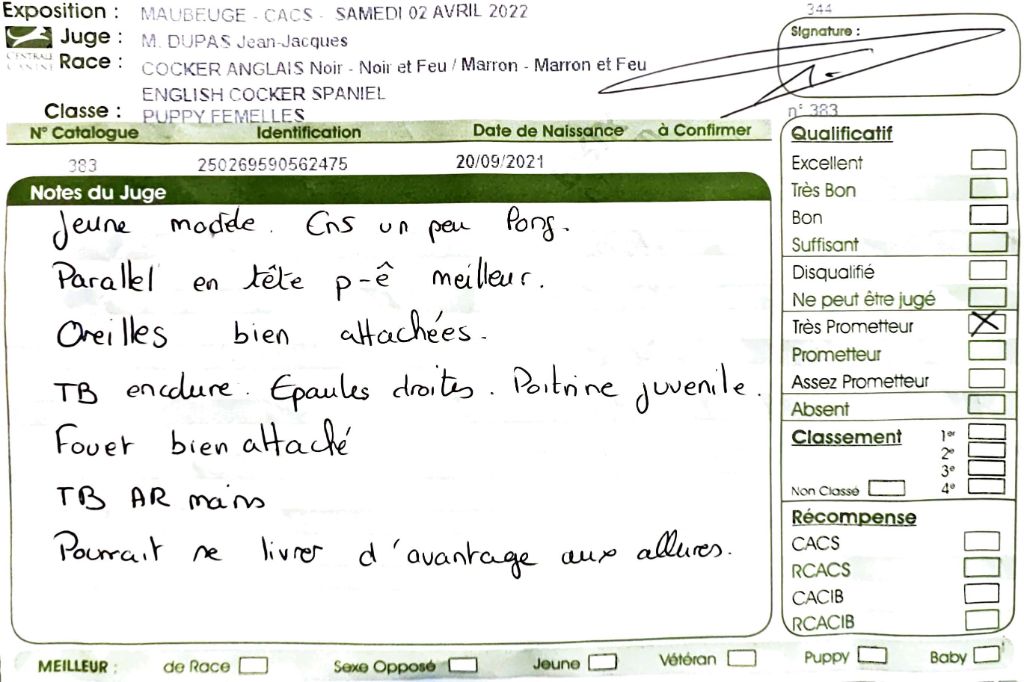 Exposition : MAUBEUGE - CACS - SAMEDI 02 AVRIL 2022
344
Juge : M. DUPAS Jean-Jacques
Signature :
CENTRALE CANINE
Race : COCKER ANGLAIS Noir - Noir et Feu / Marron - Marron et Feu
ENGLISH COCKER SPANIEL
Classe : PUPPY FEMELLES
n° 383
N° Catalogue Identification Date de Naissance à Confirmer
383 250269590562475 20/09/2021
Notes du Juge
Jeune modèle. Ens un peu long.
Parallel en tête p-ê meilleur.
Oreilles bien attachées.
TB encolure. Epaules droites. Poitrine juvenile.
Fouet bien attaché
TB AR mains
Pourrait se livrer d'avantage aux allures.
Qualificatif
Excellent
Très Bon
Bon
Suffisant
Disqualifié
Ne peut être jugé
Très Prometteur X
Prometteur
Assez Prometteur
Absent
Classement 1er
2e
3e
Non Classé 4e
Récompense
CACS
RCACS
CACIB
RCACIB
MEILLEUR : de Race Sexe Opposé Jeune Vétéran Puppy Baby